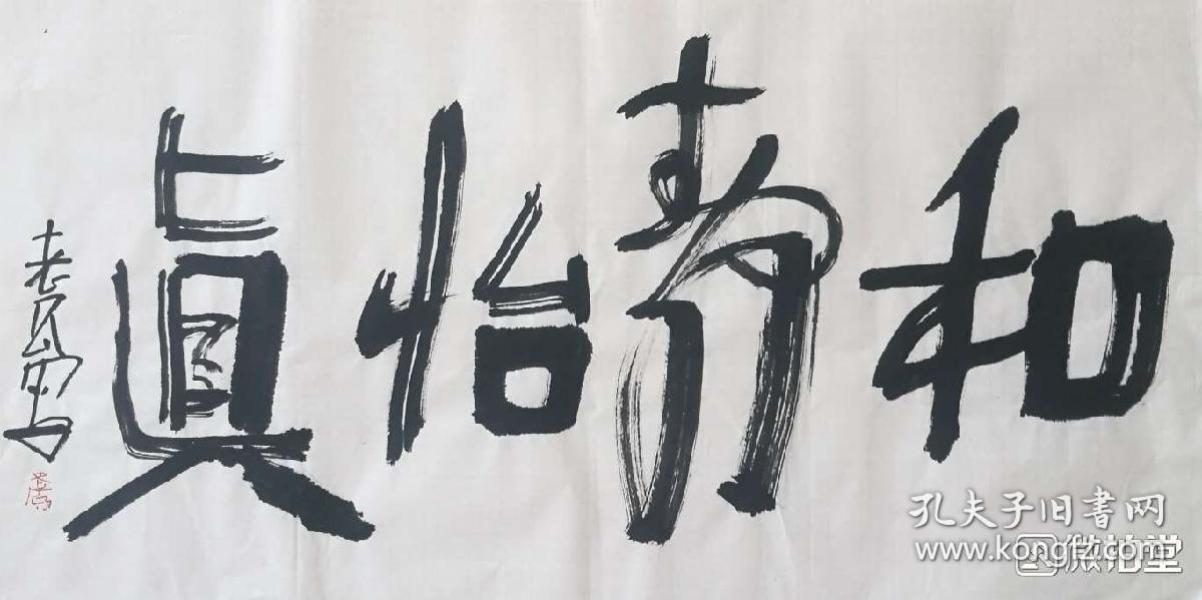 和靜怡真
孔夫子旧書网
www.kongfz.com
微拍堂